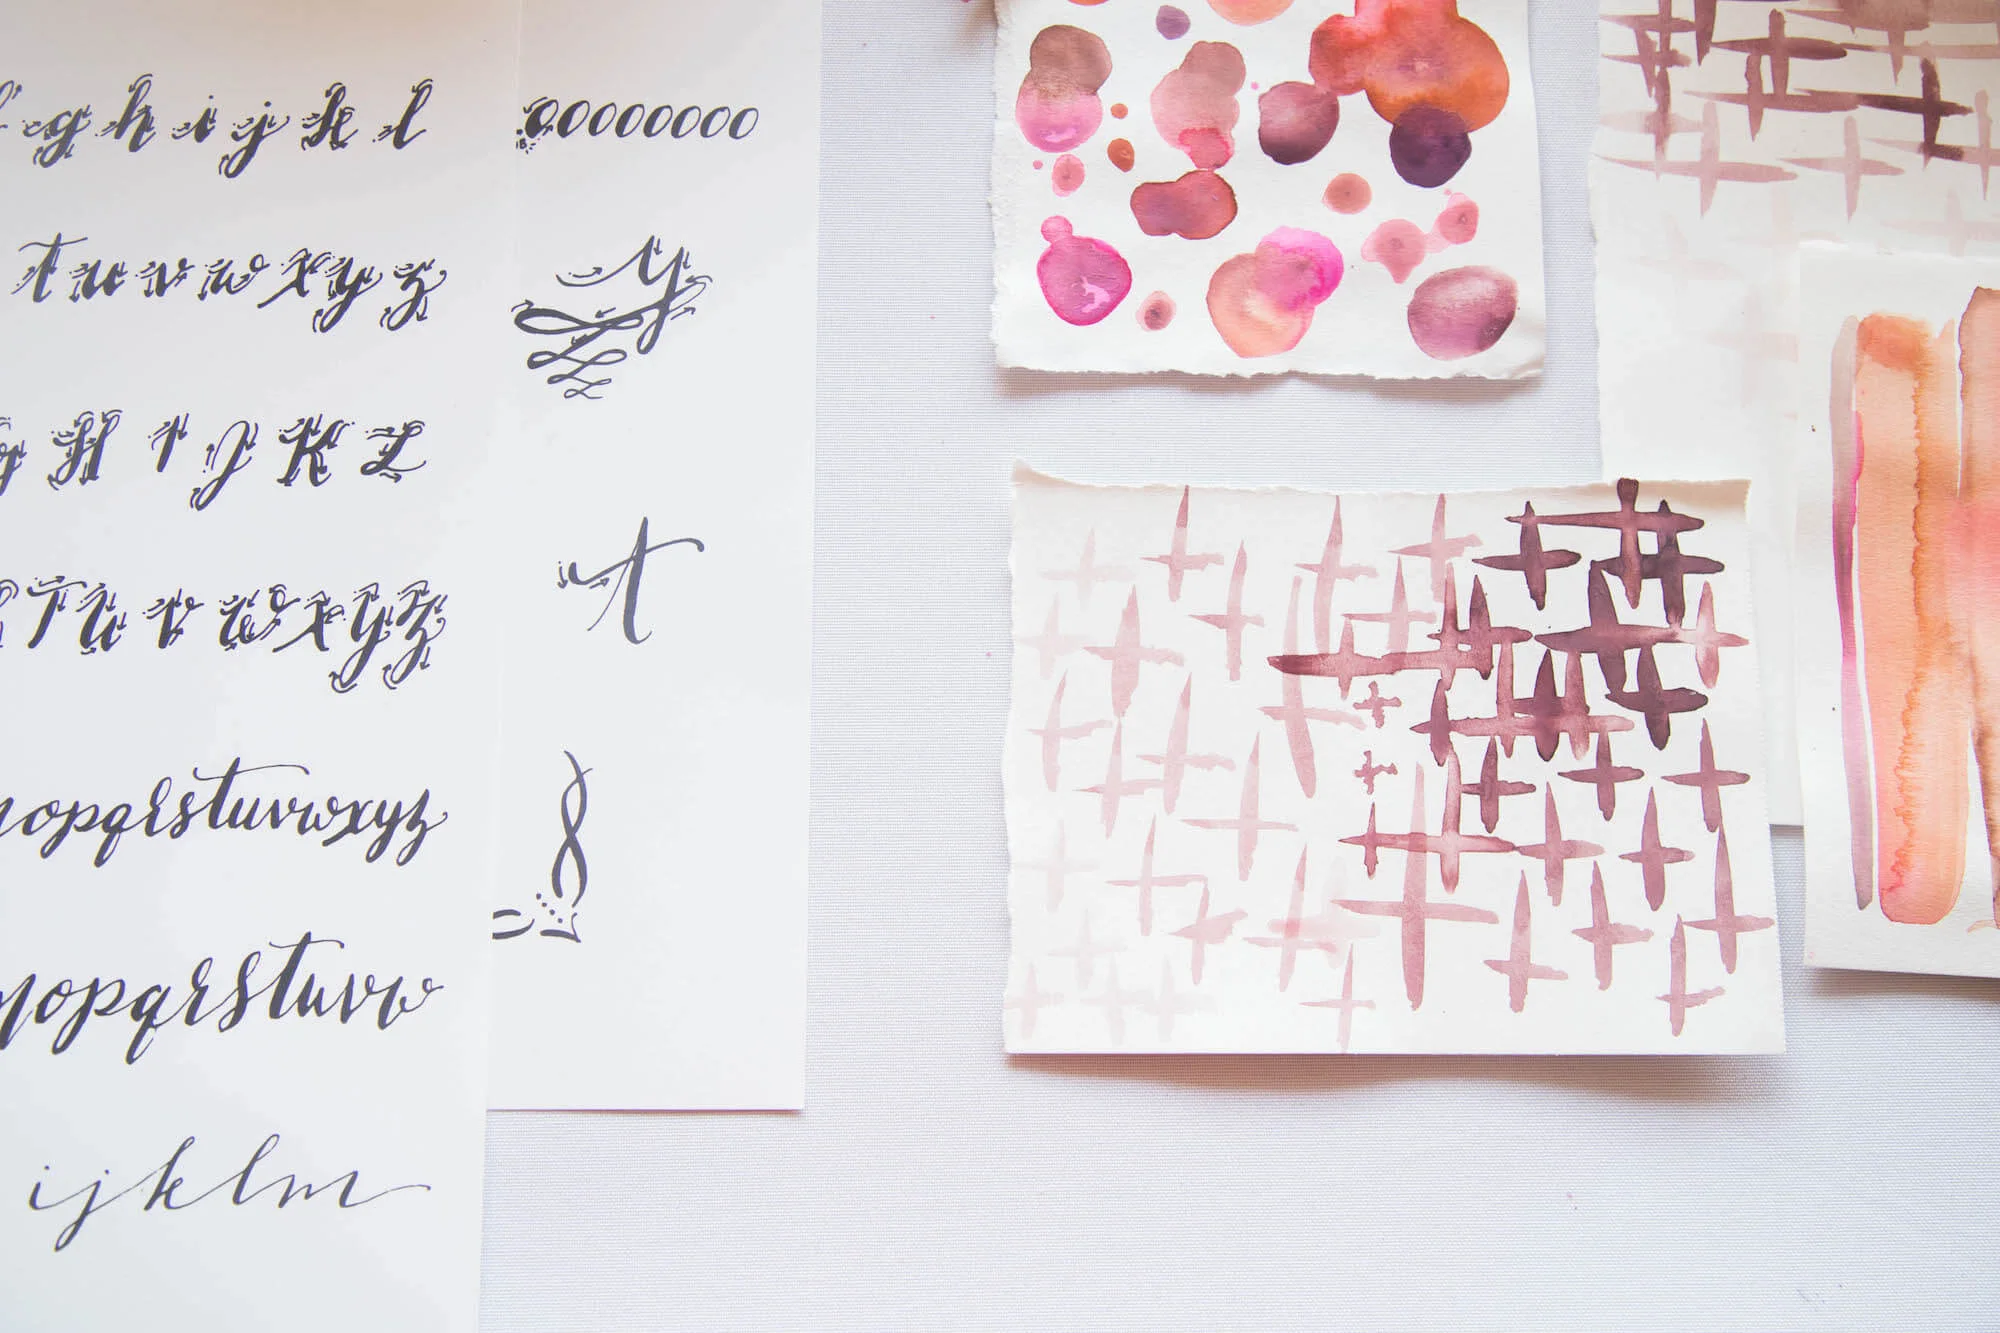 g h i j k l
t u v w x y z
G H I J K L
T U V W X Y Z
nopqrstuvwxyz
nopqrstuvw
ijklm
ooooooooo
y
A